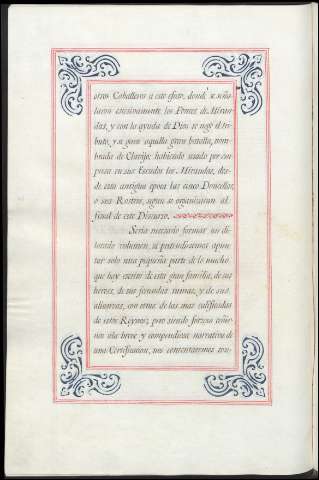 otros Caballeros a este efecto, donde se seña
laron excesivamente los Ponces de Miran
das, y con la ayuda de Dios se negó el tri
buto, y se ganó aquella gran batalla, nom
brada de Clavijo: habiendo usado por em
presa en sus Escudos los Mirandas, des
de esta antigua epoca las cinco Doncellas,
o sus Rostros, segun se organizaran al
final de este Discurso.
Seria necesario formar un di
latado volumen, si pretendiesemos apun
tar solo una pequeña parte de lo mucho
que hay escrito de esta gran familia, de sus
heroes, de sus fecundas ramas, y de sus
alianzas, con otras de las mas calificadas
de estos Reynos; pero siendo forzoso ceñir
nos a la breve y compendiosa narrativa de
una Certificacion, nos contentaremos con